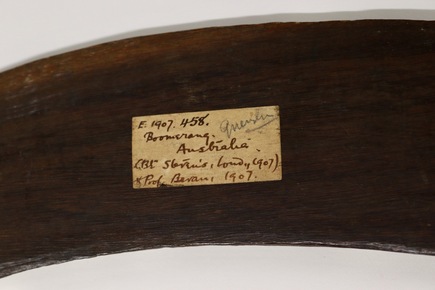 E. 1907. 458.
Boomerang.
Australia.
(Bt Stevens, Lond, 1907)
Prof. Bevan, 1907.